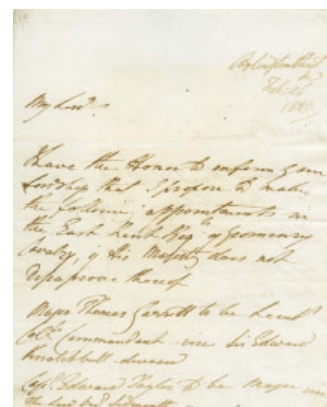 Feb. 26
1820
My Lord
I have the Honor to inform Your
Lordship that I propose to make
the following appointments in
the East Kent Regt. of Yeomanry
Cavalry, if His Majesty does not
disapprove thereof
Major Thomas Garrett to be Lieutt.
Coll. Commandant vice Sir Edward
Knatchbull deceased
Capt. Edward Taylor to be Major vice